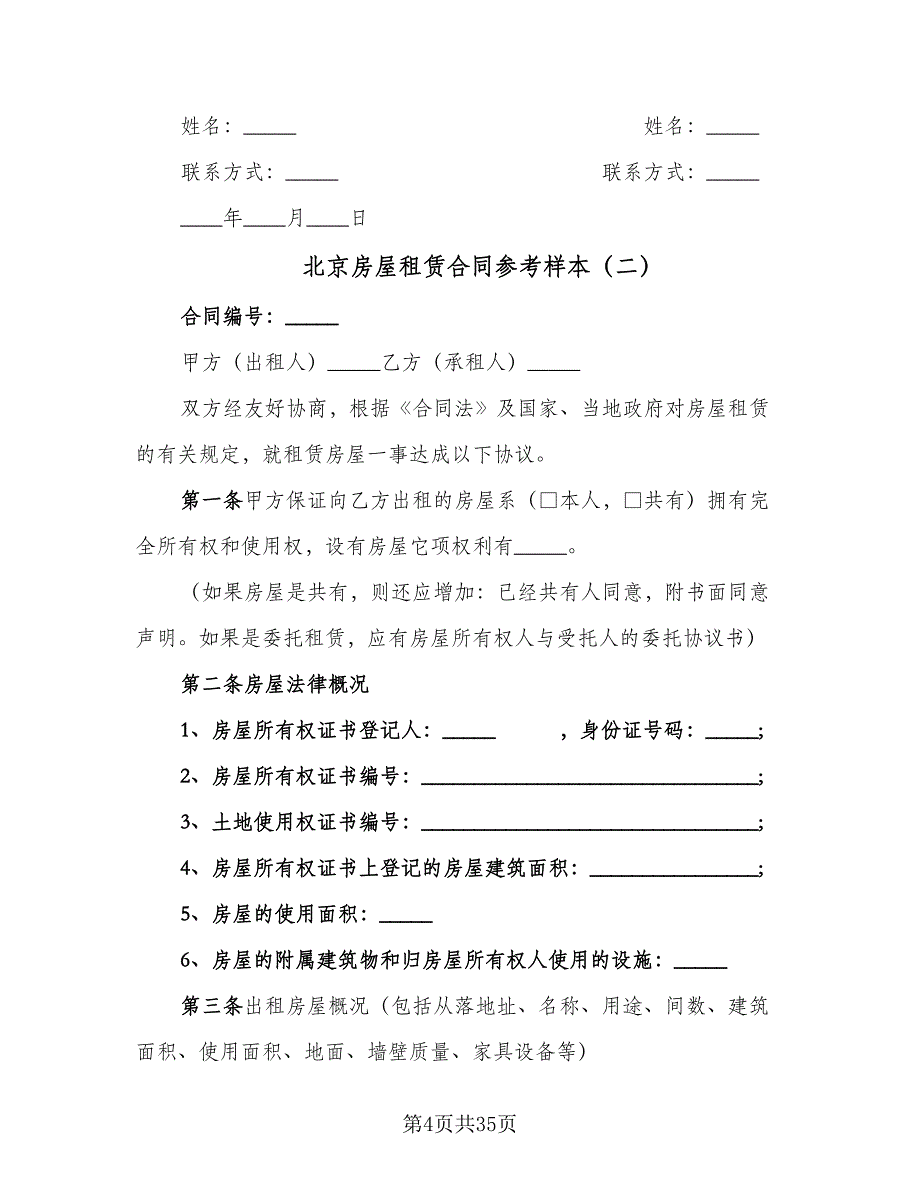 姓名：_____ 姓名：_____
联系方式：_____ 联系方式：_____
____年____月____日
北京房屋租赁合同参考样本（二）
合同编号：_____
甲方（出租人）_____乙方（承租人）_____
双方经友好协商，根据《合同法》及国家、当地政府对房屋租赁
的有关规定，就租赁房屋一事达成以下协议。
第一条甲方保证向乙方出租的房屋系（□本人，□共有）拥有完
全所有权和使用权，设有房屋它项权利有_____。
（如果房屋是共有，则还应增加：已经共有人同意，附书面同意
声明。如果是委托租赁，应有房屋所有权人与受托人的委托协议书）
第二条房屋法律概况
1、房屋所有权证书登记人：_____ ，身份证号码：_____;
2、房屋所有权证书编号：________________________________;
3、土地使用权证书编号：________________________________;
4、房屋所有权证书上登记的房屋建筑面积：________________;
5、房屋的使用面积：_____
6、房屋的附属建筑物和归房屋所有权人使用的设施：_____
第三条出租房屋概况（包括从落地址、名称、用途、间数、建筑
面积、使用面积、地面、墙壁质量、家具设备等）
第4页共35页